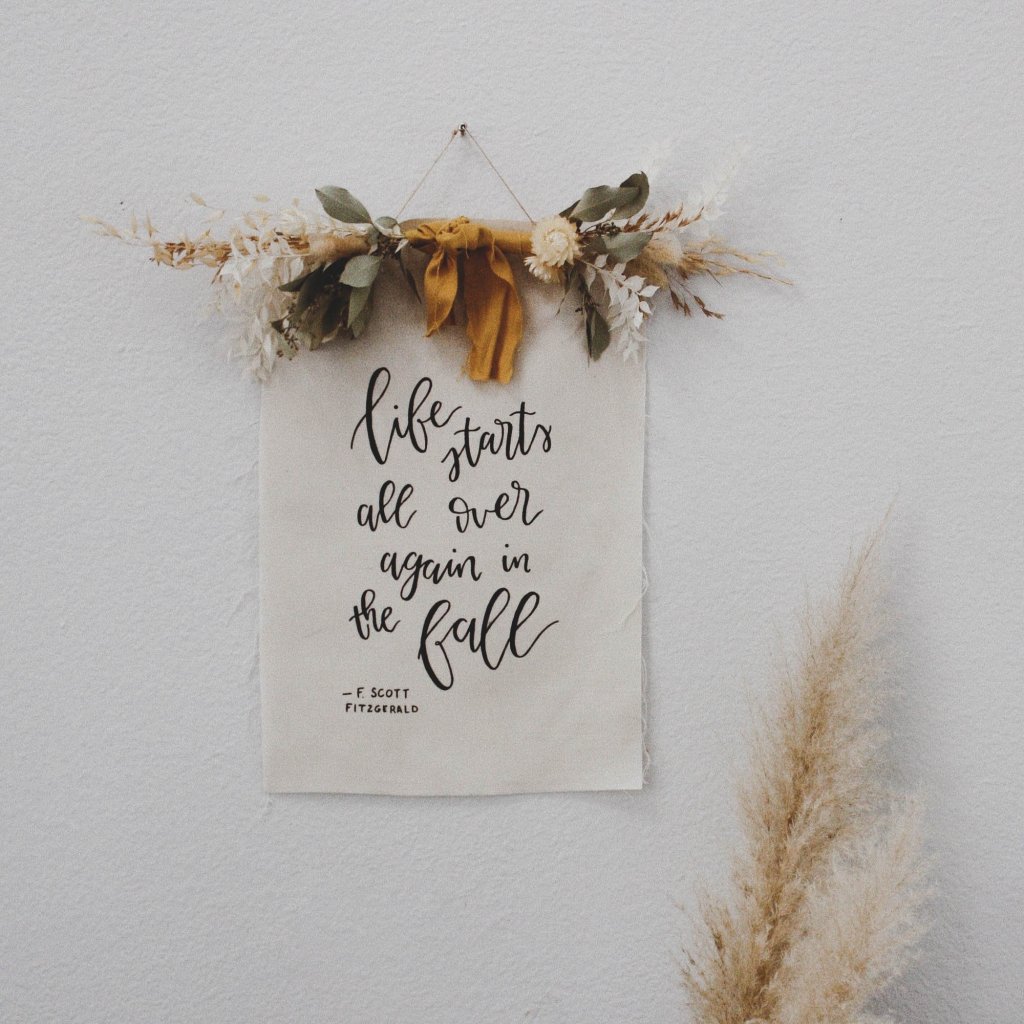 life starts
all over
again in
the fall
— F. SCOTT
FITZGERALD